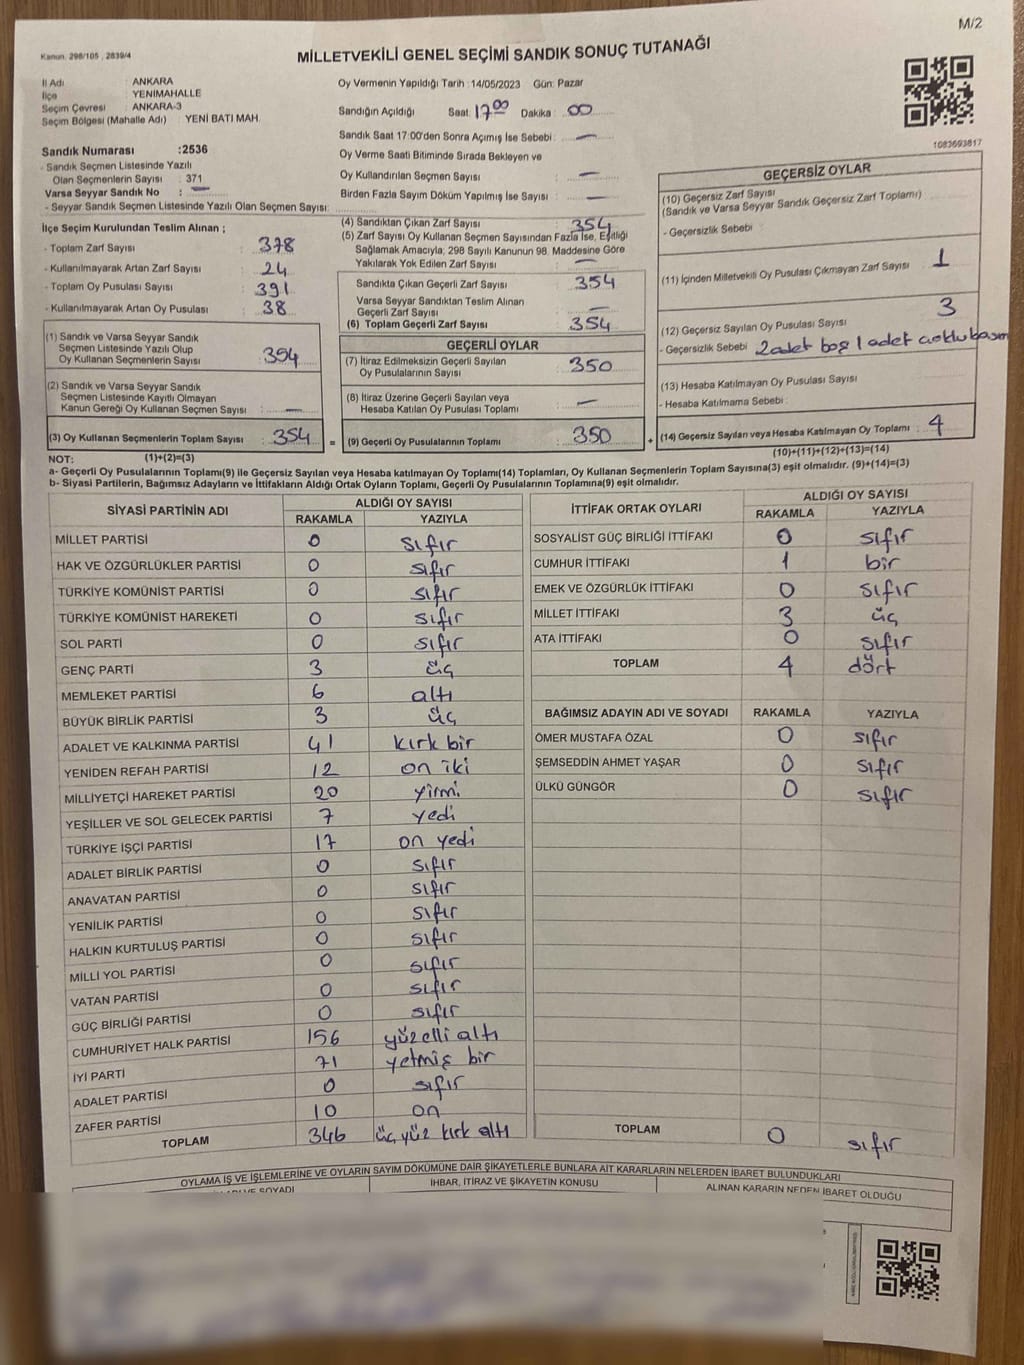 M/2
Kanun. 298/105 , 2839/4
MİLLETVEKİLİ GENEL SEÇİMİ SANDIK SONUÇ TUTANAĞI
İl Adı : ANKARA
İlçe : YENİMAHALLE
Seçim Çevresi : ANKARA-3
Seçim Bölgesi (Mahalle Adı) : YENİ BATI MAH.
Oy Vermenin Yapıldığı Tarih : 14/05/2023 Gün: Pazar
Sandığın Açıldığı Saat: 17 00 Dakika : 00
Sandık Saat 17:00'den Sonra Açımış İse Sebebi : —
Oy Verme Saati Bitiminde Sırada Bekleyen ve
Oy Kullandırılan Seçmen Sayısı : —
Birden Fazla Sayım Döküm Yapılmış İse Sayısı : —
1083693817
Sandık Numarası :2536
- Sandık Seçmen Listesinde Yazılı
Olan Seçmenlerin Sayısı : 371
Varsa Seyyar Sandık No : —
- Seyyar Sandık Seçmen Listesinde Yazılı Olan Seçmen Sayısı:
İlçe Seçim Kurulundan Teslim Alınan ;
- Toplam Zarf Sayısı : 378
- Kullanılmayarak Artan Zarf Sayısı : 24
- Toplam Oy Pusulası Sayısı : 391
- Kullanılmayarak Artan Oy Pusulası : 38
(1) Sandık ve Varsa Seyyar Sandık
Seçmen Listesinde Yazılı Olup
Oy Kullanan Seçmenlerin Sayısı : 354
(2) Sandık ve Varsa Seyyar Sandık
Seçmen Listesinde Kayıtlı Olmayan
Kanun Gereği Oy Kullanan Seçmen Sayısı : —
(3) Oy Kullanan Seçmenlerin Toplam Sayısı : 354 =
(4) Sandıktan Çıkan Zarf Sayısı : 354
(5) Zarf Sayısı Oy Kullanan Seçmen Sayısından Fazla İse, Eşitliği
Sağlamak Amacıyla; 298 Sayılı Kanunun 98. Maddesine Göre
Yakılarak Yok Edilen Zarf Sayısı : —
Sandıkta Çıkan Geçerli Zarf Sayısı : 354
Varsa Seyyar Sandıktan Teslim Alınan
Geçerli Zarf Sayısı : —
(6) Toplam Geçerli Zarf Sayısı : 354
GEÇERLİ OYLAR
(7) İtiraz Edilmeksizin Geçerli Sayılan
Oy Pusulalarının Sayısı : 350
(8) İtiraz Üzerine Geçerli Sayılan veya
Hesaba Katılan Oy Pusulası Toplamı : —
(9) Geçerli Oy Pusulalarının Toplamı : 350 +
GEÇERSİZ OYLAR
(10) Geçersiz Zarf Sayısı
(Sandık ve Varsa Seyyar Sandık Geçersiz Zarf Toplamı)
- Geçersizlik Sebebi :
(11) İçinden Milletvekili Oy Pusulası Çıkmayan Zarf Sayısı : 1
(12) Geçersiz Sayılan Oy Pusulası Sayısı : 3
- Geçersizlik Sebebi : 2adet boş 1 adet
(13) Hesaba Katılmayan Oy Pusulası Sayısı :
- Hesaba Katılmama Sebebi :
(14) Geçersiz Sayılan veya Hesaba Katılmayan Oy Toplamı : 4
NOT: (1)+(2)=(3)
(10)+(11)+(12)+(13)=(14)
a- Geçerli Oy Pusulalarının Toplamı(9) ile Geçersiz Sayılan veya Hesaba katılmayan Oy Toplamı(14) Toplamları, Oy Kullanan Seçmenlerin Toplam Sayısına(3) eşit olmalıdır. (9)+(14)=(3)
b- Siyasi Partilerin, Bağımsız Adayların ve İttifakların Aldığı Ortak Oyların Toplamı, Geçerli Oy Pusulalarının Toplamına(9) eşit olmalıdır.
SİYASİ PARTİNİN ADI ALDIĞI OY SAYISI
RAKAMLA YAZIYLA
MİLLET PARTİSİ 0 sıfır
HAK VE ÖZGÜRLÜKLER PARTİSİ 0 sıfır
TÜRKİYE KOMÜNİST PARTİSİ 0 sıfır
TÜRKİYE KOMÜNİST HAREKETİ 0 sıfır
SOL PARTİ 0 sıfır
GENÇ PARTİ 3 üç
MEMLEKET PARTİSİ 6 altı
BÜYÜK BİRLİK PARTİSİ 3 üç
ADALET VE KALKINMA PARTİSİ 41 kırk bir
YENİDEN REFAH PARTİSİ 12 on iki
MİLLİYETÇİ HAREKET PARTİSİ 20 yirmi
YEŞİLLER VE SOL GELECEK PARTİSİ 7 yedi
TÜRKİYE İŞÇİ PARTİSİ 17 on yedi
ADALET BİRLİK PARTİSİ 0 sıfır
ANAVATAN PARTİSİ 0 sıfır
YENİLİK PARTİSİ 0 sıfır
HALKIN KURTULUŞ PARTİSİ 0 sıfır
MİLLİ YOL PARTİSİ 0 sıfır
VATAN PARTİSİ 0 sıfır
GÜÇ BİRLİĞİ PARTİSİ 0 sıfır
CUMHURİYET HALK PARTİSİ 156 yüzelli altı
İYİ PARTİ 71 yetmiş bir
ADALET PARTİSİ 0 sıfır
ZAFER PARTİSİ 10 on
TOPLAM 346 üç yüz kırk altı
İTTİFAK ORTAK OYLARI ALDIĞI OY SAYISI
RAKAMLA YAZIYLA
SOSYALİST GÜÇ BİRLİĞİ İTTİFAKI 0 sıfır
CUMHUR İTTİFAKI 1 bir
EMEK VE ÖZGÜRLÜK İTTİFAKI 0 sıfır
MİLLET İTTİFAKI 3 üç
ATA İTTİFAKI 0 sıfır
TOPLAM 4 dört
BAĞIMSIZ ADAYIN ADI VE SOYADI RAKAMLA YAZIYLA
ÖMER MUSTAFA ÖZAL 0 sıfır
ŞEMSEDDİN AHMET YAŞAR 0 sıfır
ÜLKÜ GÜNGÖR 0 sıfır
TOPLAM 0 sıfır
OYLAMA İŞ VE İŞLEMLERİNE VE OYLARIN SAYIM DÖKÜMÜNE DAİR ŞİKAYETLERLE BUNLARA AİT KARARLARIN NELERDEN İBARET BULUNDUKLARI
VE SOYADI İHBAR, İTİRAZ VE ŞİKAYETİN KONUSU ALINAN KARARIN NEDEN İBARET OLDUĞU